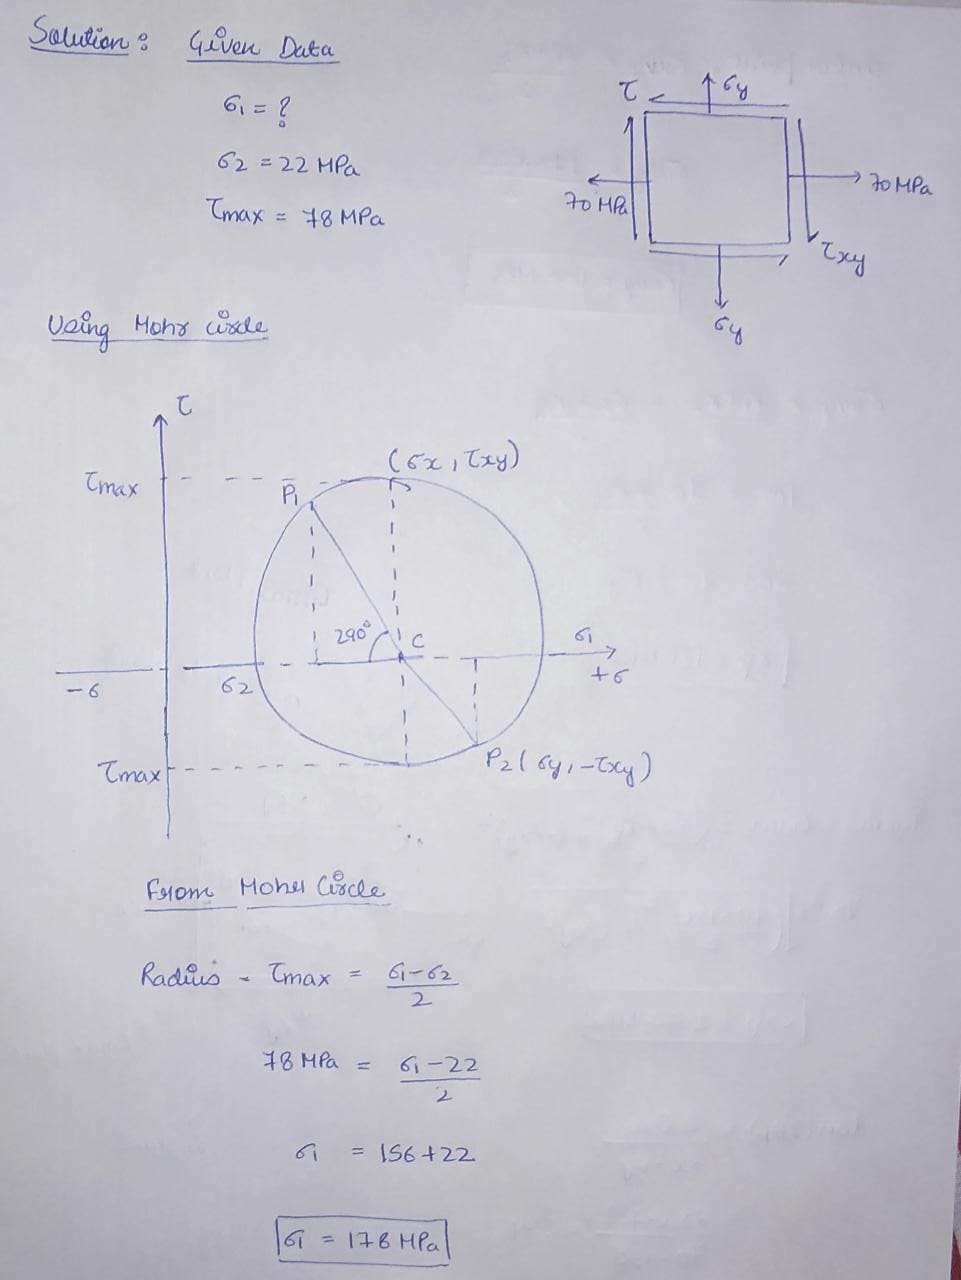 Solution: Given Data
σ1 = ?
σ2 = 22 MPa
τmax = 78 MPa
τ
σy
70 MPa
70 MPa
τxy
σy
Using Mohr circle
τ
τmax
P1
(σx, τxy)
2θ0°
C
σ1
-σ
σ2
+σ
τmax
P2(σy, -τxy)
From Moher Circle
Radius = τmax = σ1-σ2/2
78 MPa = σ1-22/2
σ1 = 156+22
σ1 = 178 MPa